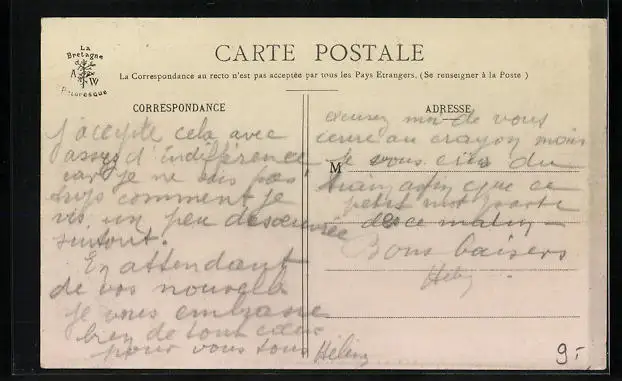 La
Bretagne
A W
Pittoresque
CARTE POSTALE
La Correspondance au recto n'est pas acceptée par tous les Pays Etrangers. (Se renseigner à la Poste)
CORRESPONDANCE
j'accepte cela avec
assez d'indifférence
car je ne sais pas
trop comment je
vis un peu désœuvrée
surtout.
En attendant
de vos nouvelles
je vous embrasse
bien de tout cœur
pour vous tous Hélène
ADRESSE
excusez moi de vous
écrire au crayon mais
M
je vous écris du
afin que ce
petit mot parte
de ce matin
Bons baisers
9.-